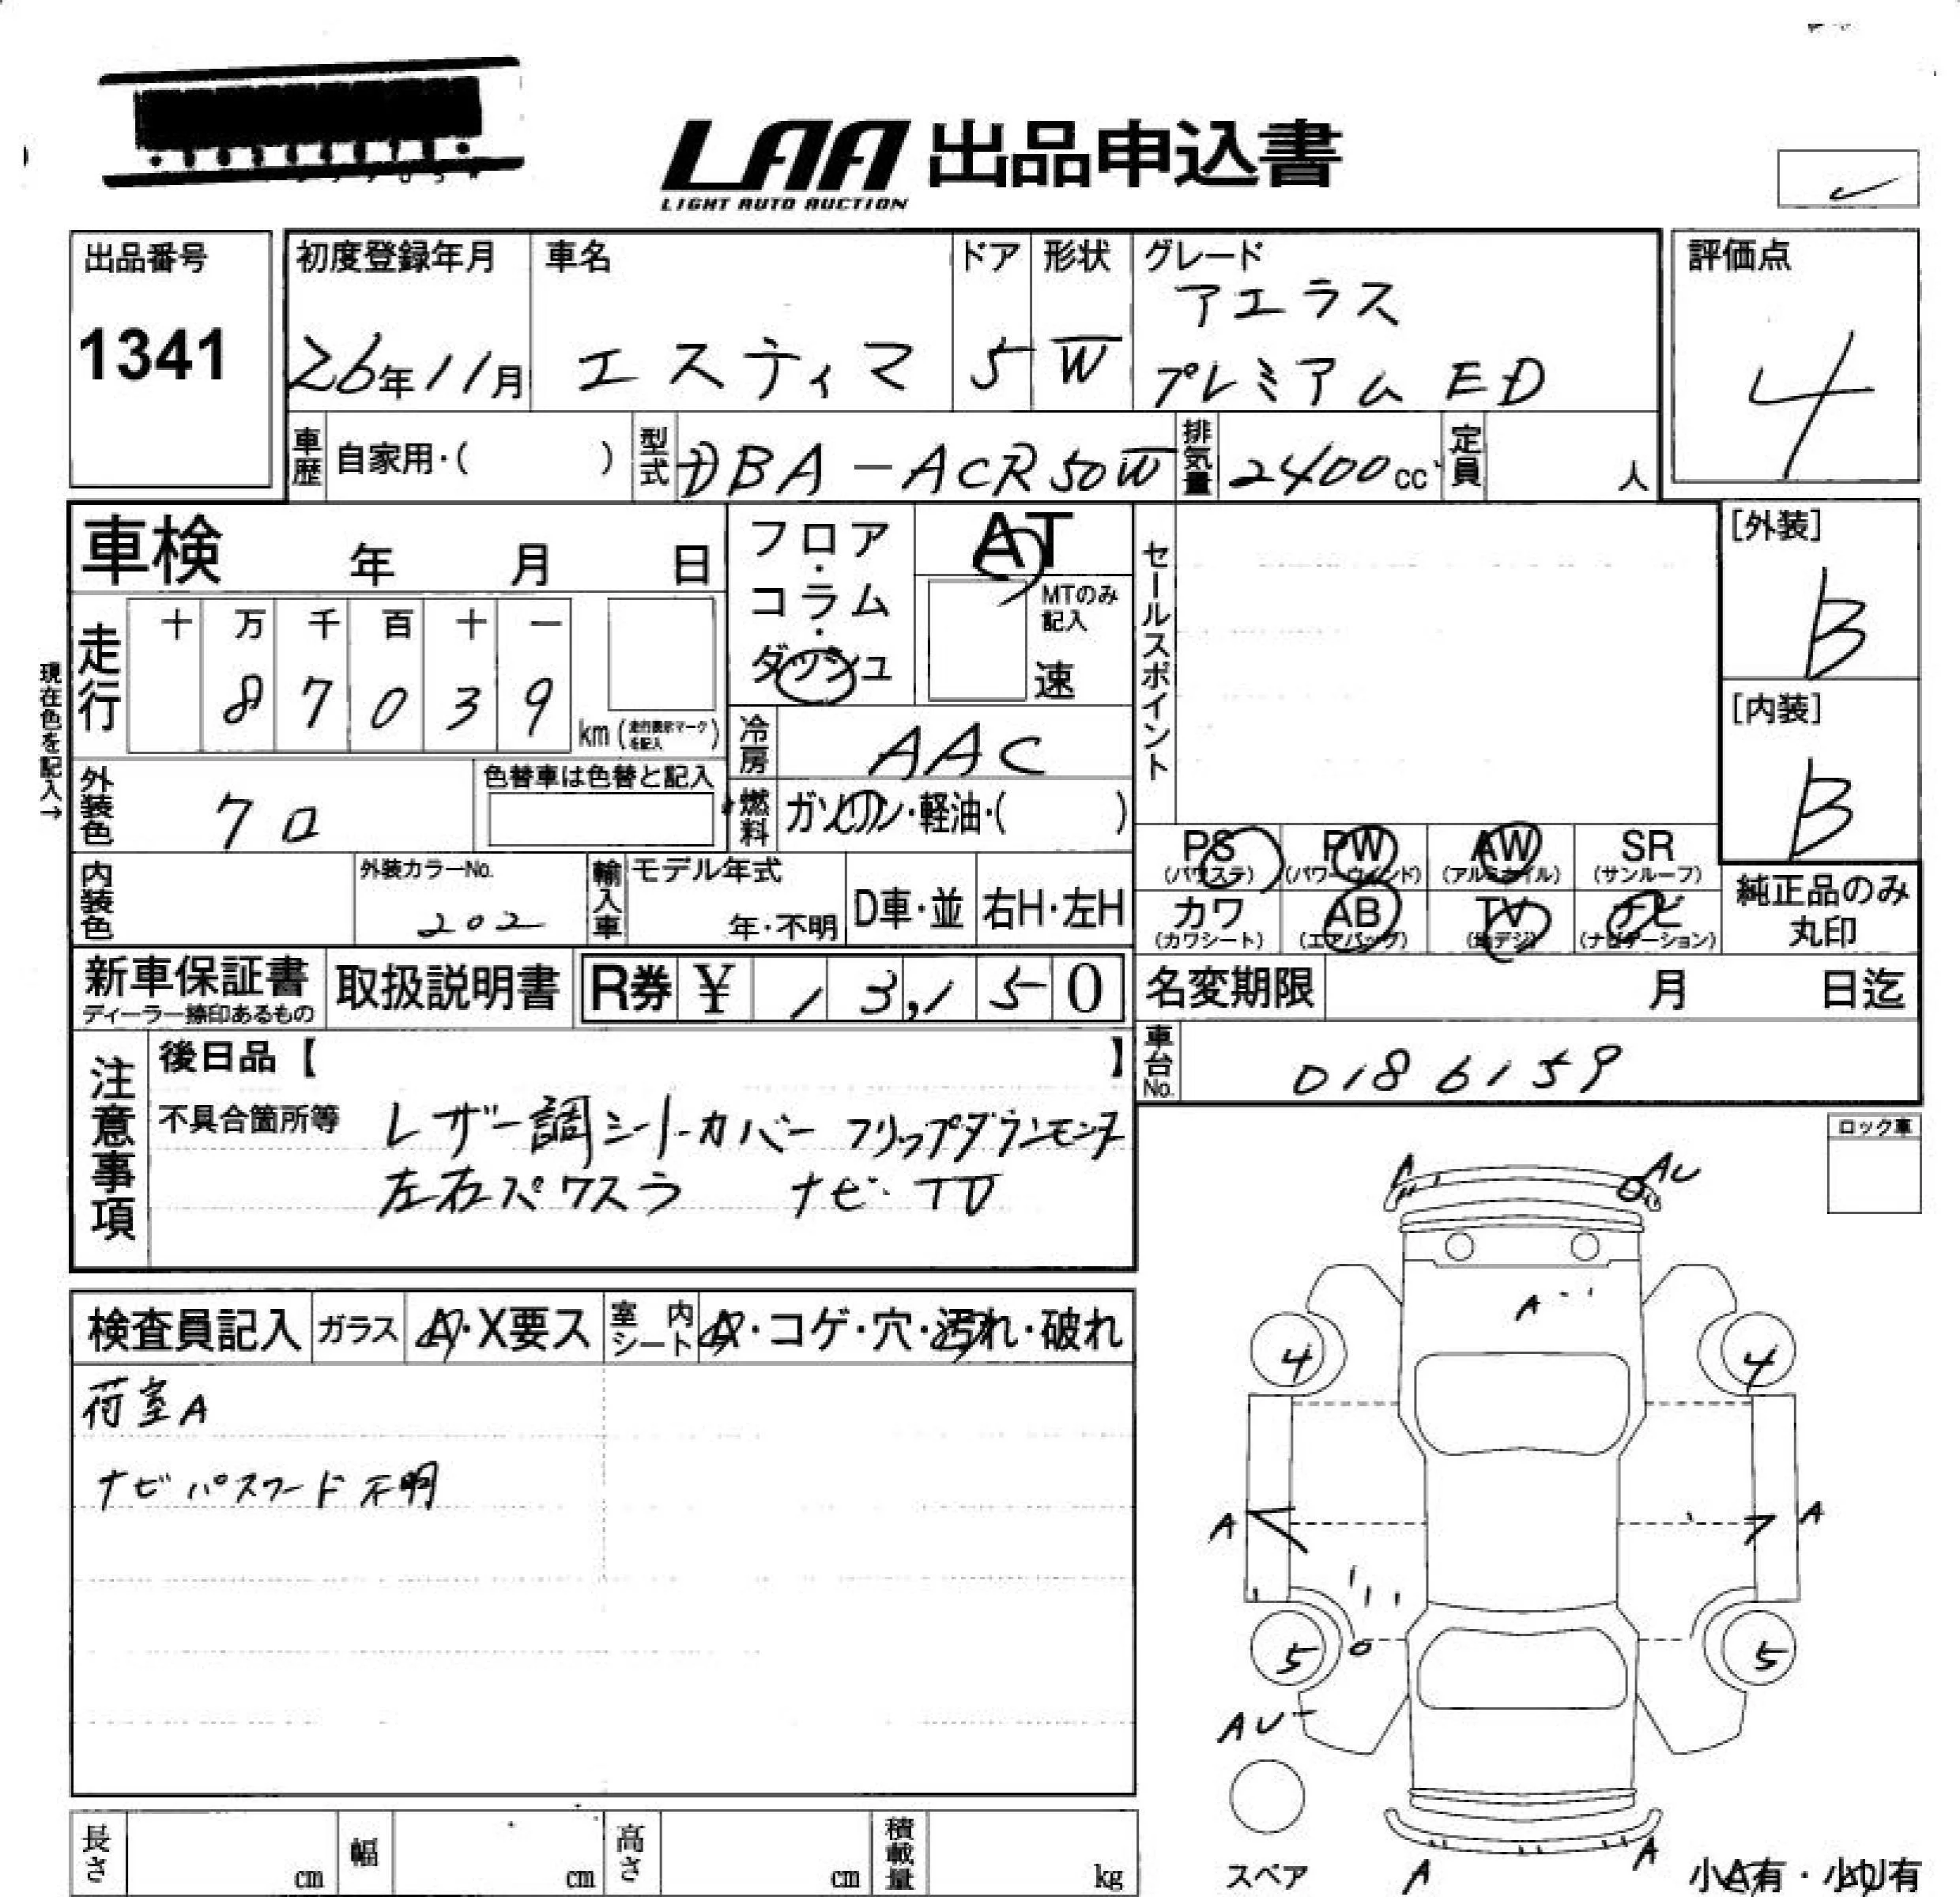 LAA 出品申込書
LIGHT AUTO AUCTION
出品番号
1341
初度登録年月
26年11月
車名
エスティマ
ドア
5
形状
W
グレード
アエラス
プレミアム ED
評価点
4
車歴 自家用・( )
型式 DBA-ACR50W
排気量 2400cc
定員 人
車検 年 月 日
フロア・コラム・ダッシュ
AT
MTのみ記入
速
セールスポイント
[外装]
B
現在色を記入→
走行
十 万 千 百 十 一
8 7 0 3 9
km (走行表示マークを記入)
冷房 AAC
[内装]
B
外装色 クロ
色替車は色替と記入
燃料 ガソリン・軽油・( )
PS (パワステ)
PW (パワーウィンド)
AW (アルミホイル)
SR (サンルーフ)
内装色
外装カラーNo.
202
輸入車
モデル年式
年・不明
D車・並
右H・左H
カワ (カワシート)
AB (エアバッグ)
TV (地デジ)
ナビ (ナビゲーション)
純正品のみ
丸印
新車保証書
ディーラー捺印あるもの
取扱説明書
R券 ¥ 13,150
名変期限 月 日迄
車台No. 0186159
注意事項
後日品【 】
不具合箇所等 レザー調シートカバー フリップダウンモニタ
左右パワスラ ナビ・TV
ロック車
検査員記入
ガラス A・X要ス
室内シート A・コゲ・穴・汚れ・破れ
荷室A
ナビパスワード不明
A
AU
A
4
4
A
A
5
5
AU
スペア
A
A
小A有・小U有
長さ cm
幅 cm
高さ cm
積載量 kg